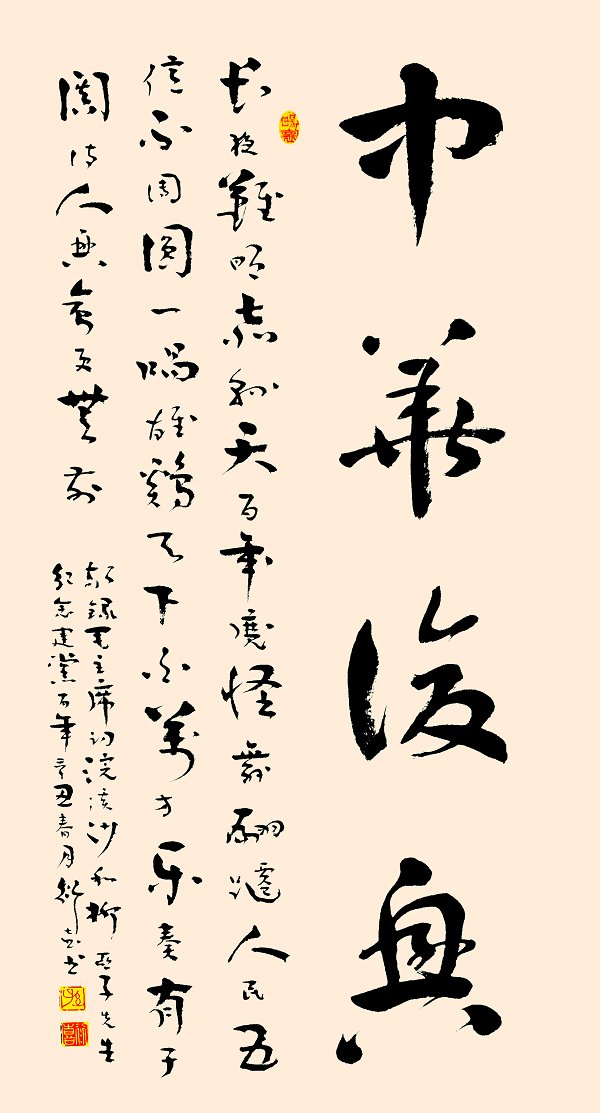 中華復興
長夜難明赤縣天百年魔怪舞翩躚人民五
億不團圓一唱雄鷄天下白萬方乐奏有于
闐詩人興會更無前
敬録毛主席词浣溪沙和柳亞子先生
紀念建黨百年辛丑春月书